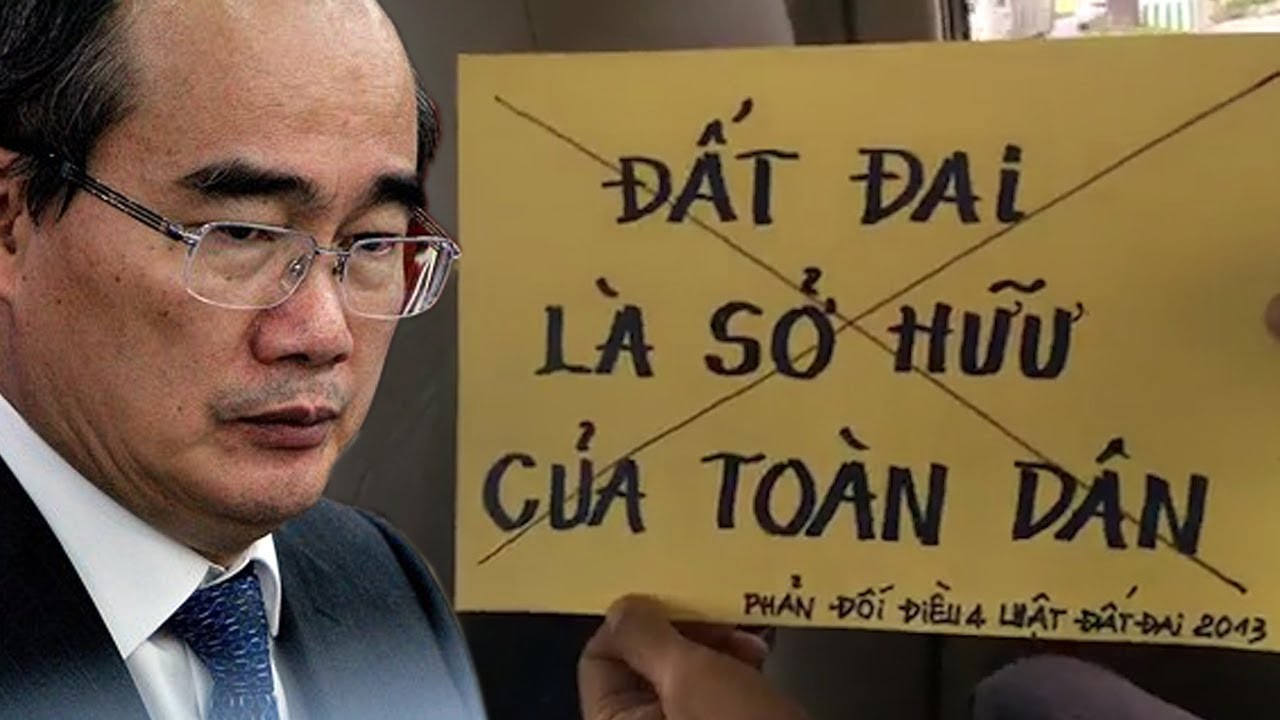 ĐẤT ĐAi
LÀ SỞ HỮU
CỦA TOÀN DÂN
PHẢN ĐỐI ĐIỀU 4 LUẬT ĐẤT ĐAi 2013